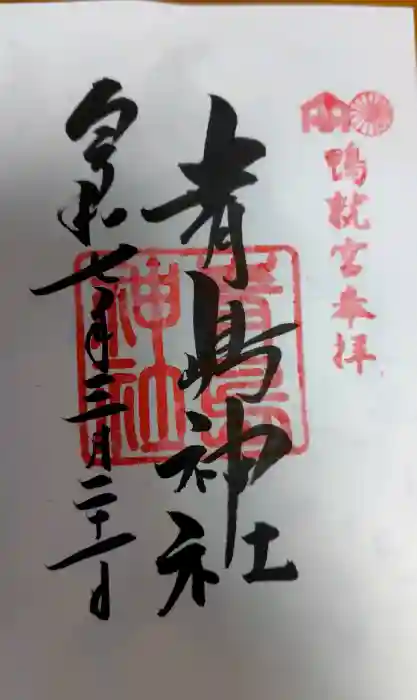 鴨就宮奉拝
青島神社
青島神社
令和七年三月二十一日